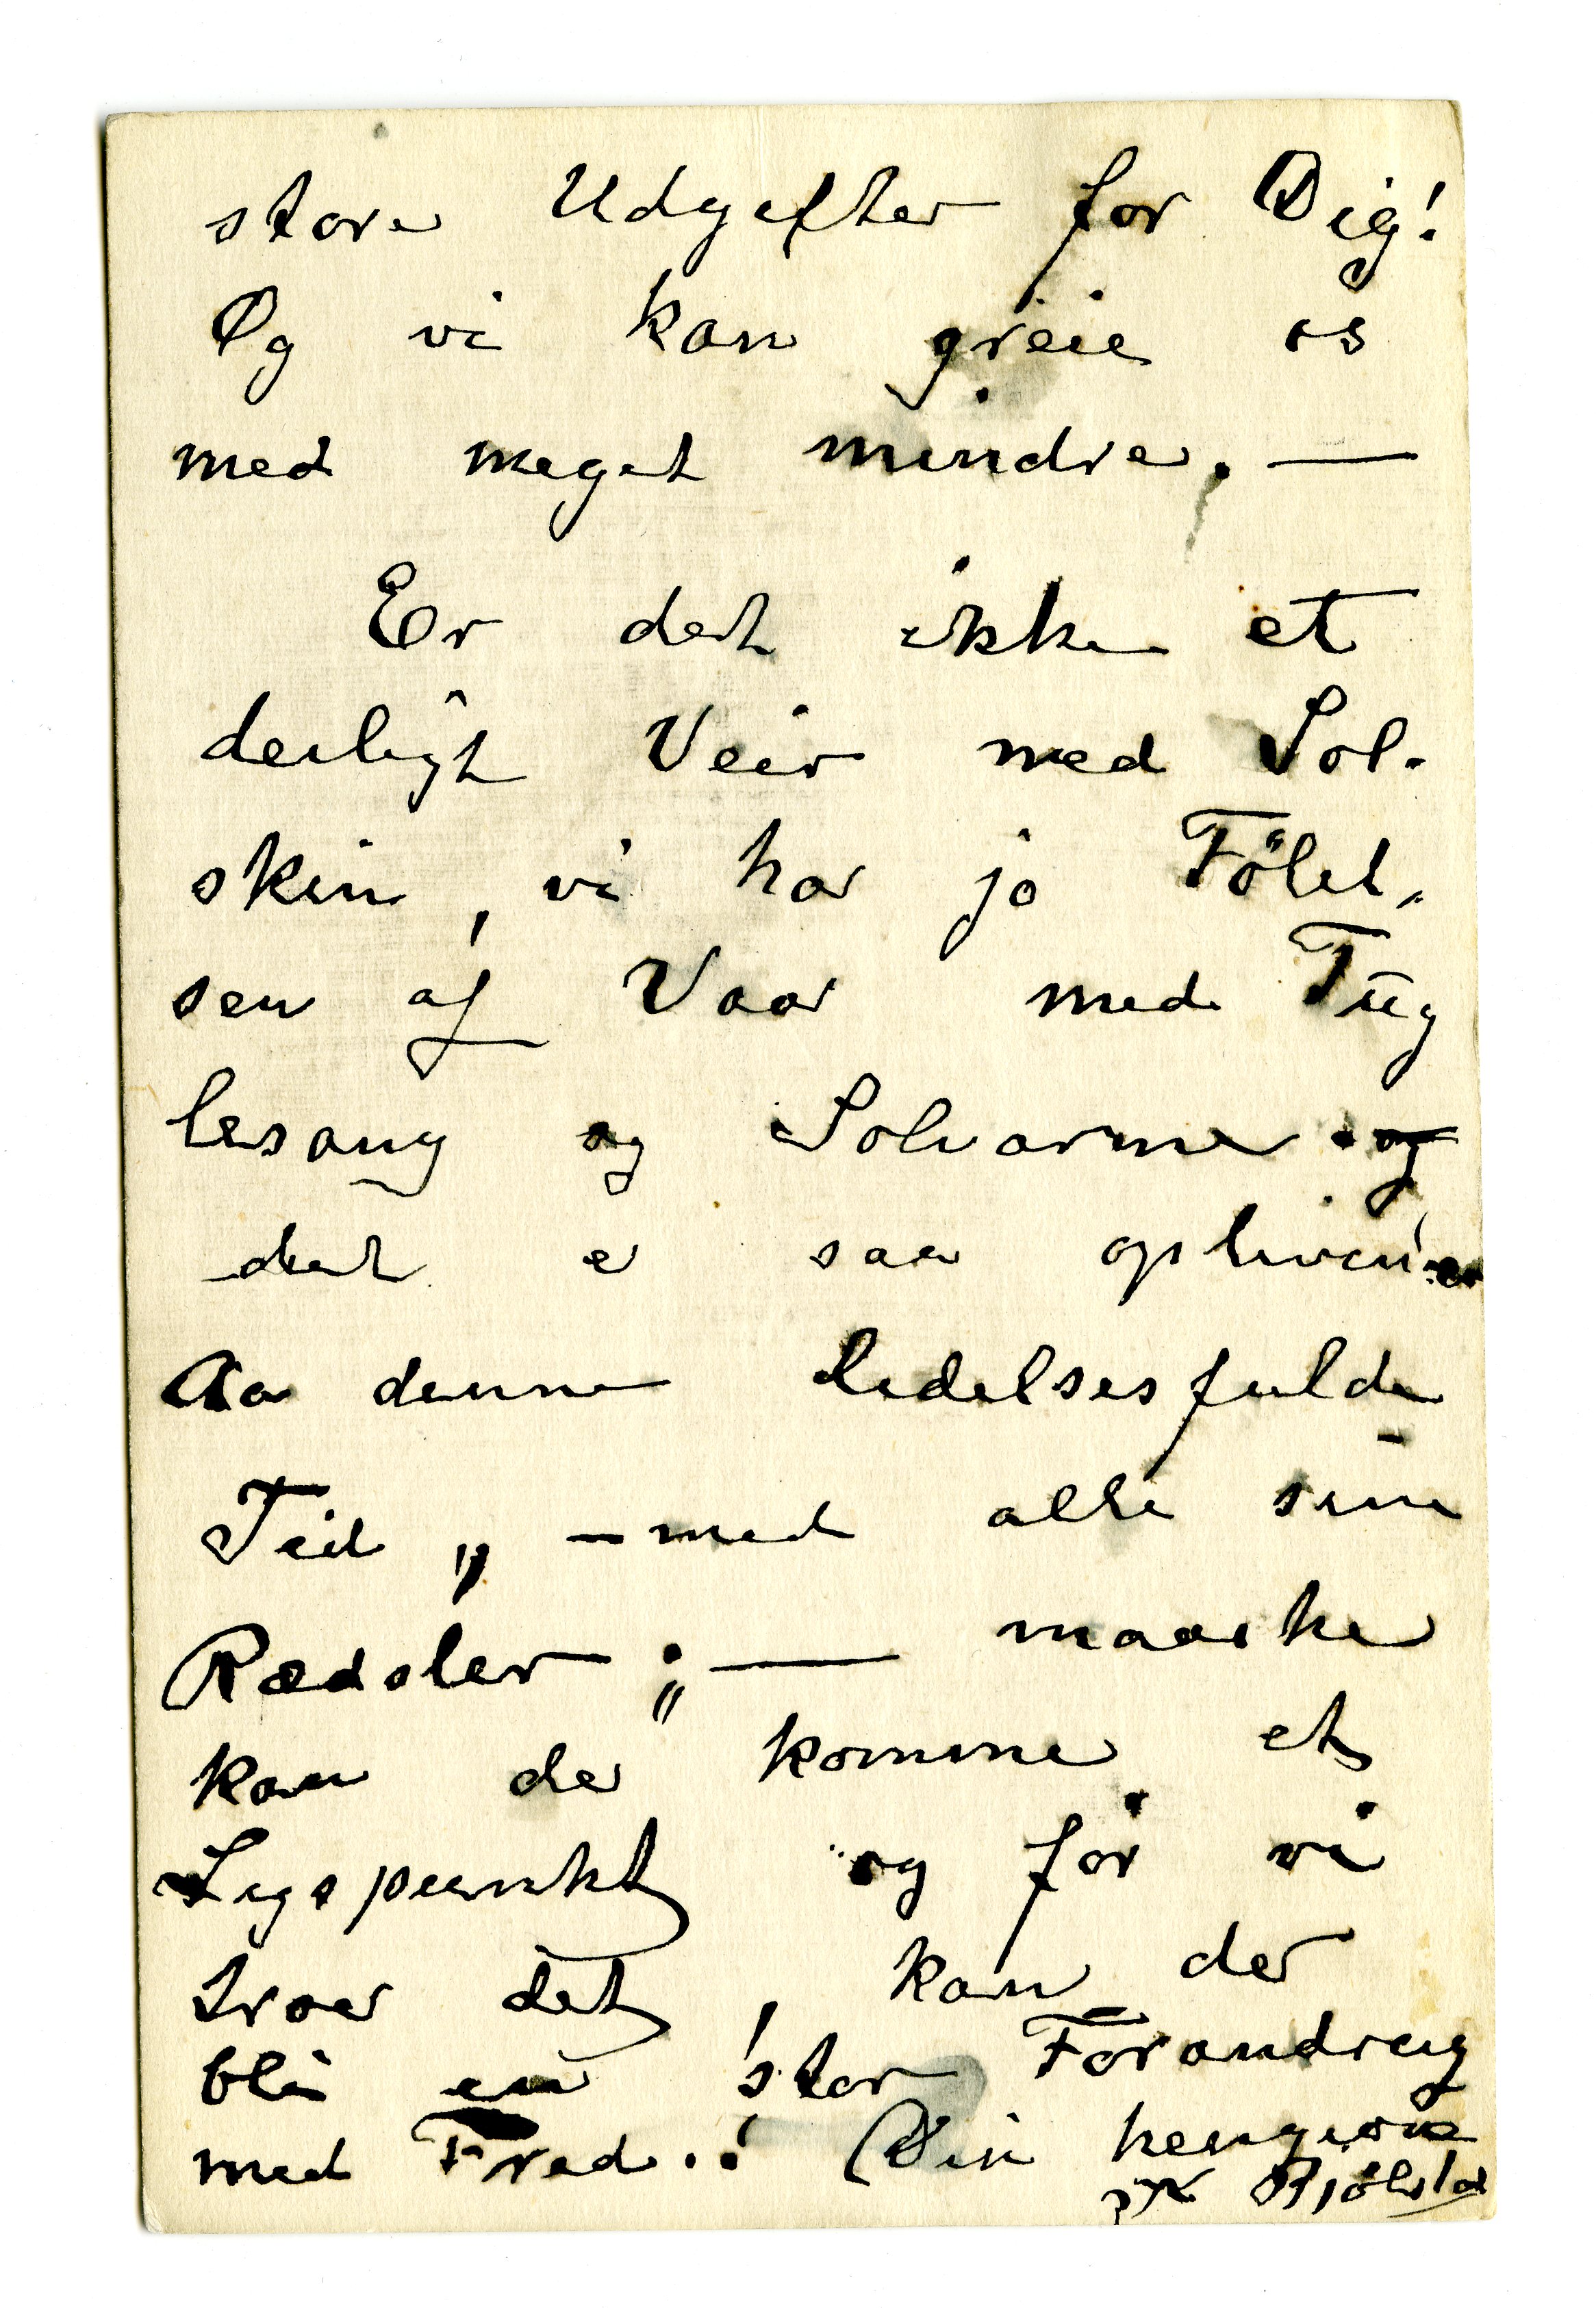 store Udgifter for Dig!
Og vi kan greie os
med meget mindre. —
Er det ikke et
deiligt Veir med Sol-
skin, vi har jo Følel,
sen af Vaar med Fug
lesang og Solvarme og
det e saa oplivende
Aa denne Lidelsesfulde
Tid „ — med alle sine
Rædsler ; — maaske
kan de komme et
Lyspunkt og før vi
troer det, kan der
bli en stor Forandring
med Fred.! Din hengivne